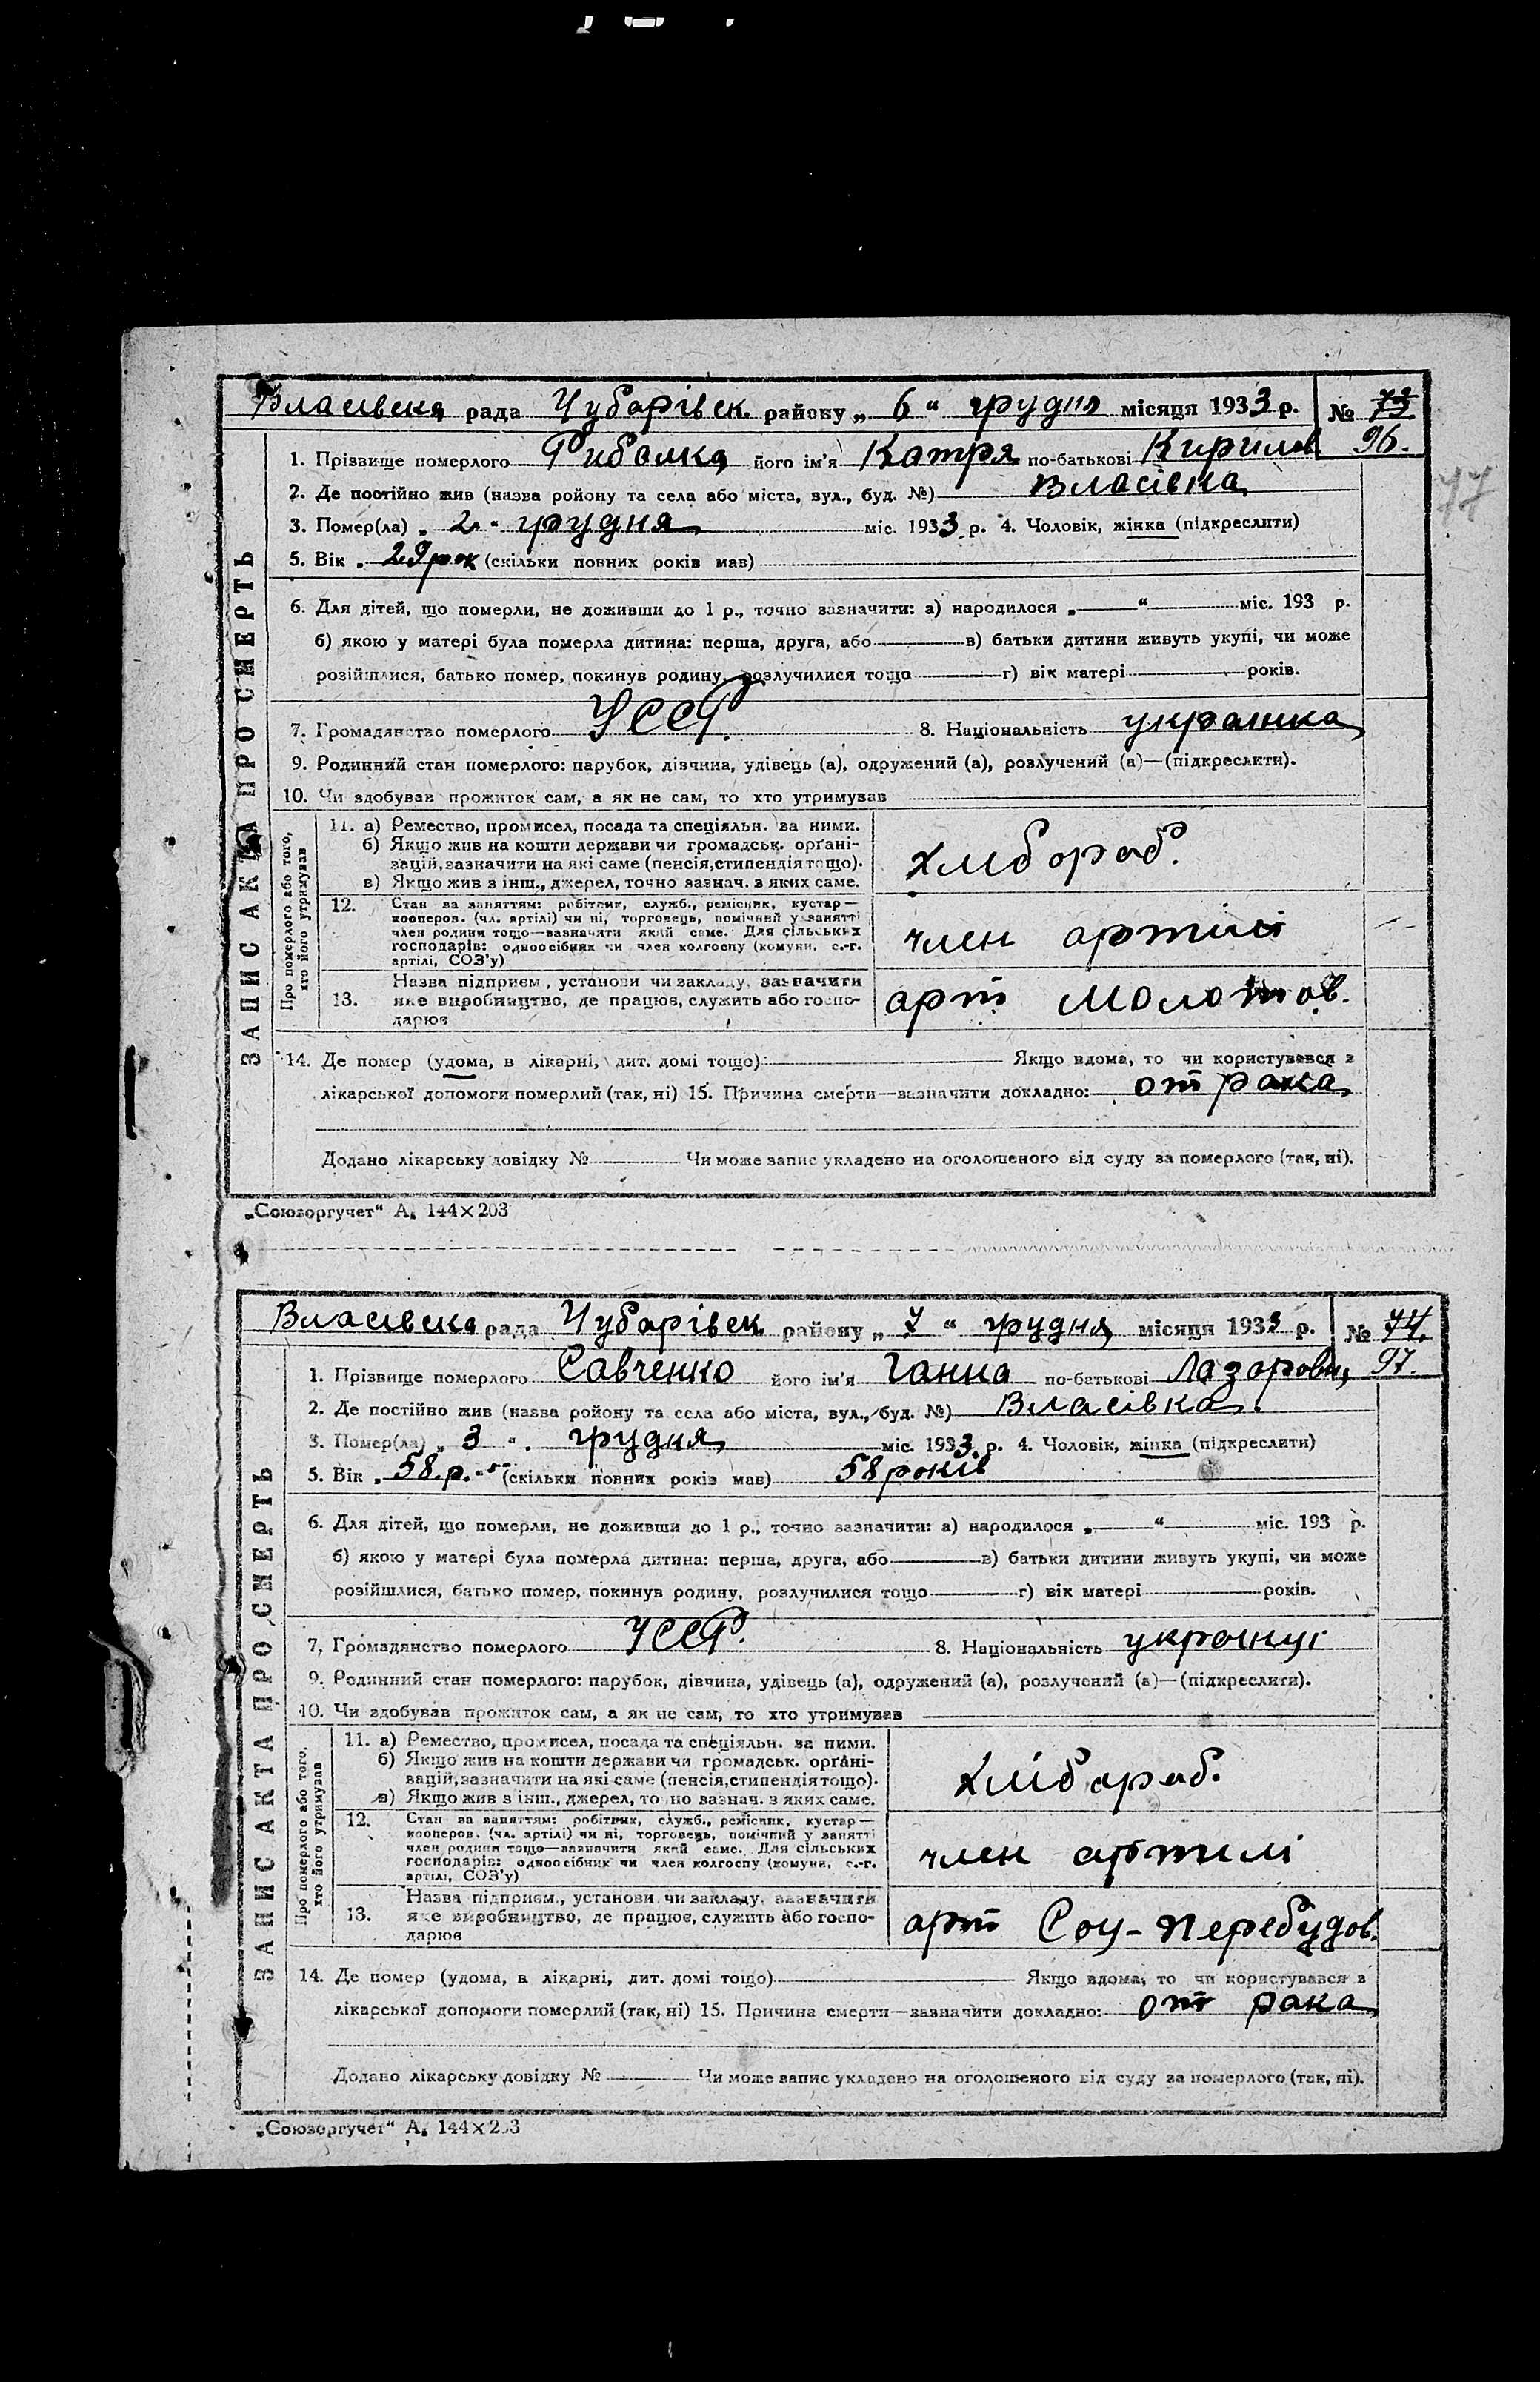 Власівська рада Чубарівськ. району „6“ грудня місяця 1933 р. № 73.
96.
77
ЗАПИС АКТА ПРО СМЕРТЬ
1. Прізвище померлого Рибалка його ім'я Катря по-батькові Кирилов.
2. Де постійно жив (назва ройону та села або міста, вул., буд. №) Власівка
3. Помер(ла) „2“ грудня міс. 1933 р. 4. Чоловік, жінка (підкреслити)
5. Вік „29 рок (скільки повних років мав)
6. Для дітей, що померли, не доживши до 1 р., точно зазначити: а) народилося „ “ міс. 193 р.
б) якою у матері була померла дитина: перша, друга, або в) батьки дитини живуть укупі, чи може
розійшлися, батько помер, покинув родину, розлучилися тощо г) вік матері років.
7. Громадянство померлого УССР. 8. Національність
9. Родинний стан померлого: парубок, дівчина, удівець (а), одружений (а), розлучений (а)—(підкреслити).
10. Чи здобував прожиток сам, а як не сам, то хто утримував
Про померлого або того,
хто його утримував
11. а) Ремество, промисел, посада та спеціяльн. за ними.
б) Якщо жив на кошти держави чи громадськ. орґані-
зацій, зазначити на які саме (пенсія, стипендія тощо).
в) Якщо жив з інш., джерел, точно зазнач. з яких саме.
хлібороб.
12. Стан за заняттям: робітник, служб., ремісник, кустар—
кооперов. (чл. артілі) чи ні, торговець, помічний у занятті
член родини тощо—зазначити який саме. Для сільських
господарів: одноосібник чи член колгоспу (комуни, с.-г.
артілі, СОЗ'у)
член артилі
13. Назва підприєм., установи чи закладу, зазначити
яке виробництво, де працює, служить або госпо-
дарює
арт. Молотов.
14. Де помер (удома, в лікарні, дит. домі тощо) Якщо вдома, то чи користувався з
лікарської допомоги померлий (так, ні) 15. Причина смерти—зазначити докладно: от рака
Додано лікарську довідку № Чи може запис укладено на оголошеного від суду за померлого (так, ні).
„Союзоргучет“ А₅ 144×203
Власівська рада Чубарівськ району „7“ грудня місяця 1933 р. № 74.
97.
ЗАПИС АКТА ПРО СМЕРТЬ
1. Прізвище померлого Савченко його ім'я Ганна по-батькові Лазоровн
2. Де постійно жив (назва ройону та села або міста, вул., буд. №) Власівка
3. Помер(ла) „3“ грудня міс. 1933 р. 4. Чоловік, жінка (підкреслити)
5. Вік „58. р.“ (скільки повних років мав) 58 років
6. Для дітей, що померли, не доживши до 1 р., точно зазначити: а) народилося „ “ міс. 193 р.
б) якою у матері була померла дитина: перша, друга, або в) батьки дитини живуть укупі, чи може
розійшлися, батько помер, покинув родину, розлучилися тощо г) вік матері років.
7. Громадянство померлого УССР. 8. Національність
9. Родинний стан померлого: парубок, дівчина, удівець (а), одружений (а), розлучений (а)—(підкреслити).
10. Чи здобував прожиток сам, а як не сам, то хто утримував
Про померлого або того,
хто його утримував
11. а) Ремество, промисел, посада та спеціяльн. за ними.
б) Якщо жив на кошти держави чи громадськ. орґані-
зацій, зазначити на які саме (пенсія, стипендія тощо).
в) Якщо жив з інш., джерел, точно зазнач. з яких саме.
хлібороб.
12. Стан за заняттям: робітник, служб., ремісник, кустар—
кооперов. (чл. артілі) чи ні, торговець, помічний у занятті
член родини тощо—зазначити який саме. Для сільських
господарів: одноосібник чи член колгоспу (комуни, с.-г.
артілі, СОЗ'у)
член артилі
13. Назва підприєм., установи чи закладу, зазначити
яке виробництво, де працює, служить або госпо-
дарює
арт Соц-Перебудов.
14. Де помер (удома, в лікарні, дит. домі тощо) Якщо вдома, то чи користувався з
лікарської допомоги померлий (так, ні) 15. Причина смерти—зазначити докладно: от рака
Додано лікарську довідку № Чи може запис укладено на оголошеного від суду за померлого (так, ні).
„Союзоргучет“ А₅ 144×203